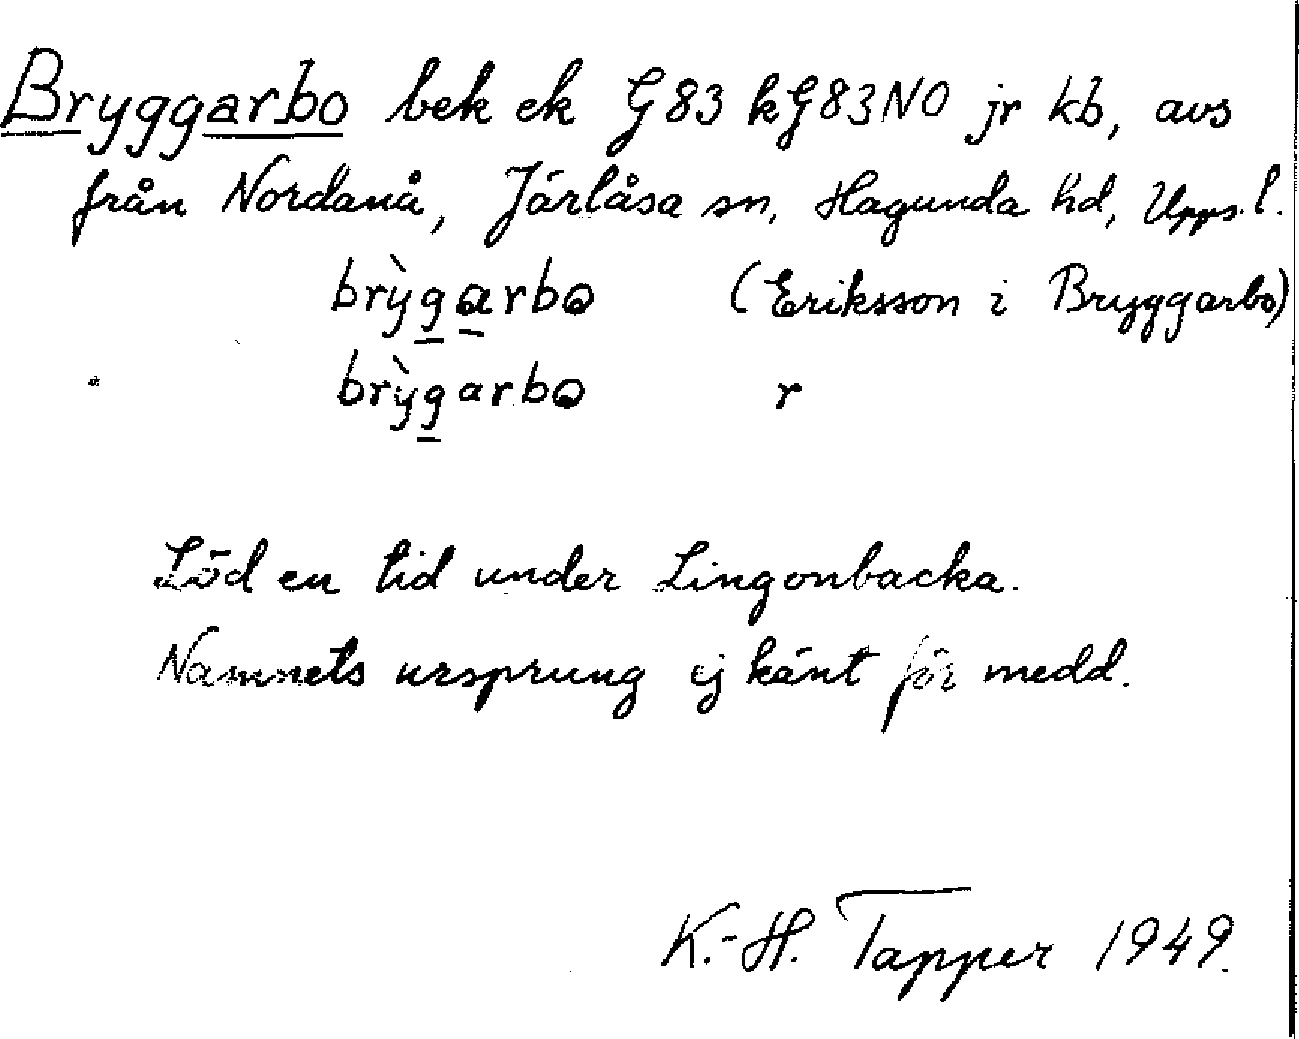 Bryggarbo bek ek G 83 k G 83 NO jr kb, avs
från Nordanå, Järlåsa sn, Hagunda hd, Upps. l.
brỳgarbo (Eriksson i Bryggarbo)
brỳgarbo r
Löd en tid under Lingonbacka.
Namnets ursprung ej känt för medd.
K.-H. Tapper 1949.